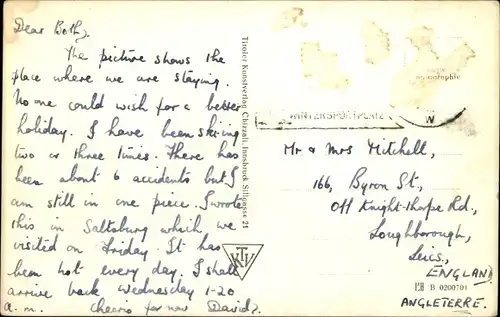 Dear Both,
The picture shows the
place where we are staying.
No one could wish for a better
holiday. I have been skiing
two or three times. There has
been about 6 accidents but I
am still in one piece. I wrote
this in Saltsburg which we
visited on Friday. It has
been hot every day. I shall
arrive back Wednesday 1-20
a.m. Cheerio for now David.
Tiroler Kunstverlag Chizzali, Innsbruck Sillgasse 21
KTV
WINTERSPORTPLATZ
W
Mr & Mrs Mitchell,
166, Byron St.,
Off Knight-thorpe Rd.,
Loughborough,
Leics,
ENGLAND
ANGLETERRE.
B 0200701